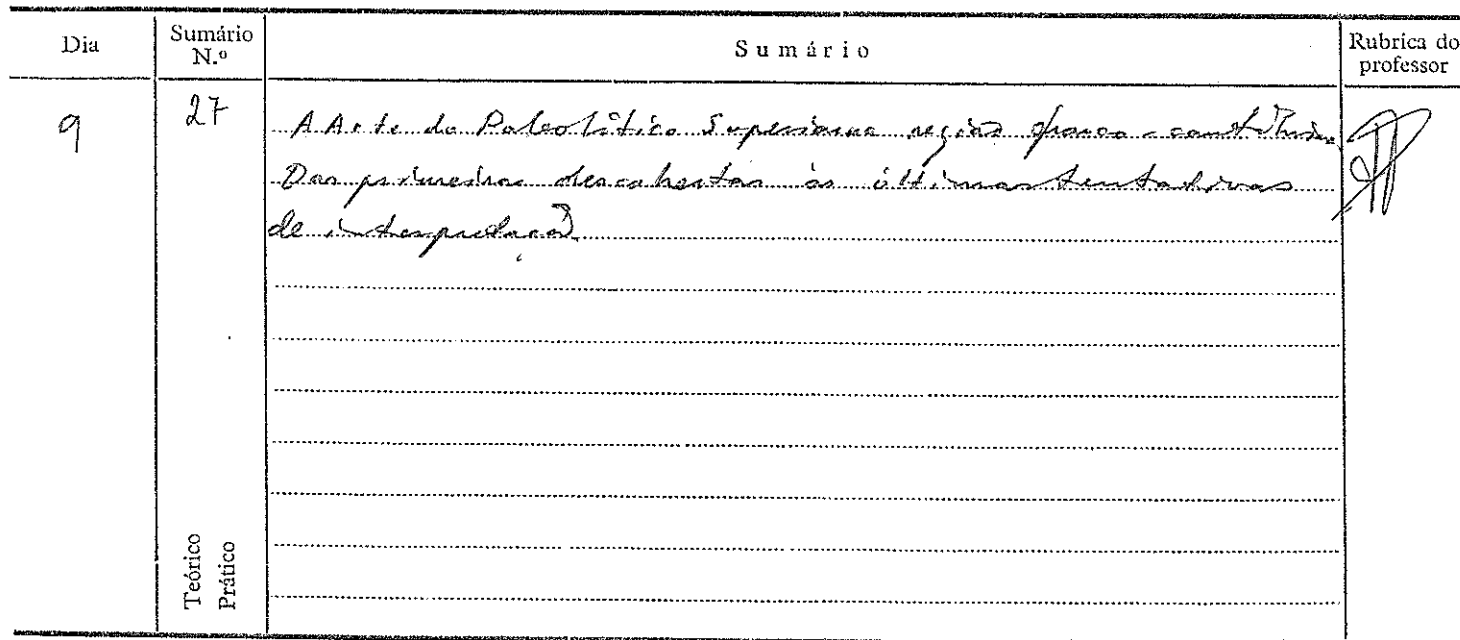 Dia
Sumário N.º
Sumário
Rubrica do professor
9
27
A Arte do Paleolítico Superior na região franco-cantábrica.
Das primeiras descobertas às últimas tentativas
de interpretação.
Teórico
Prático